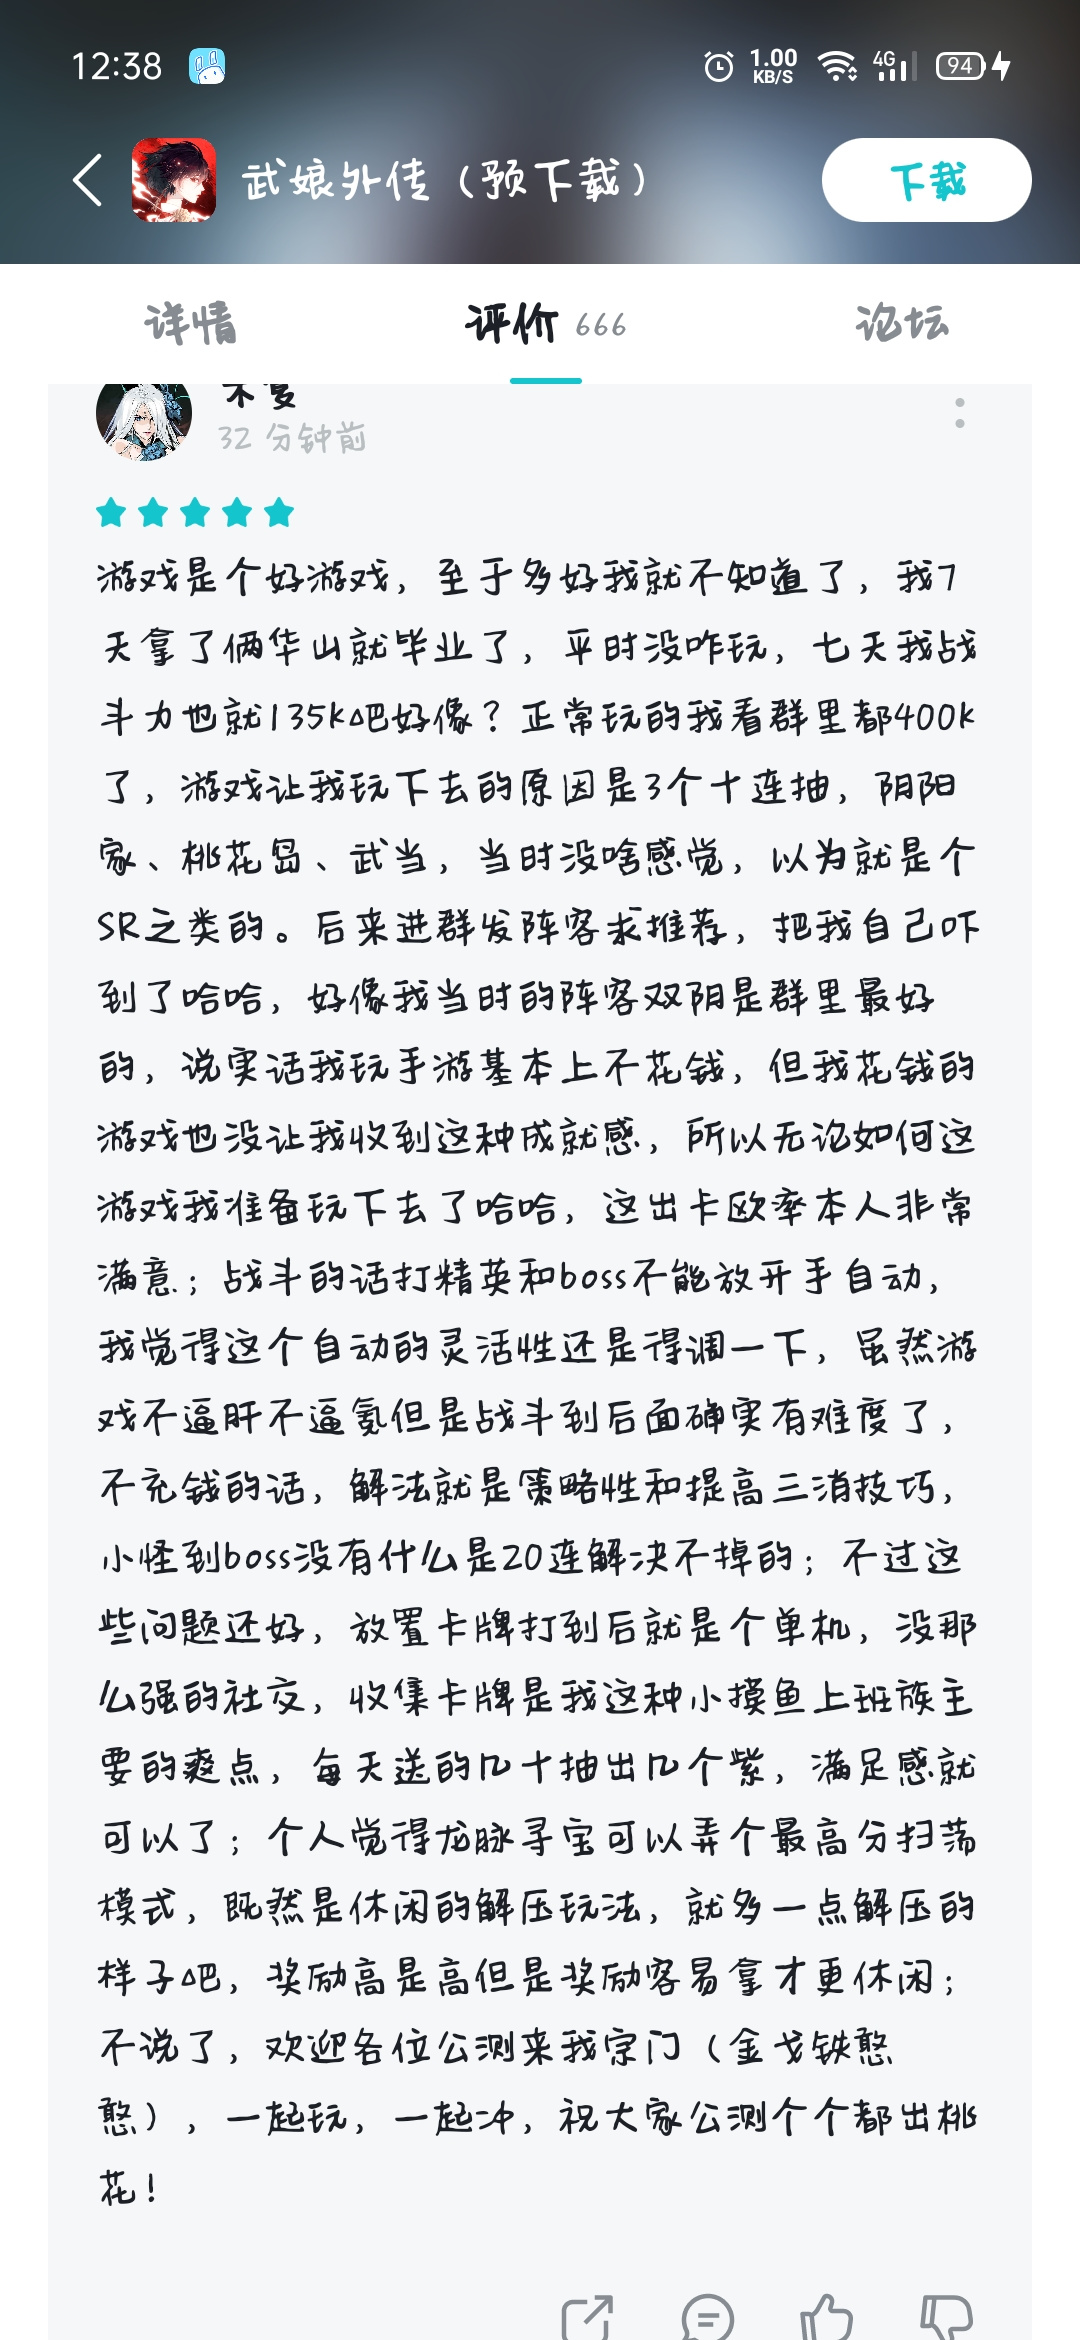 12:38
1.00
KB/S
4G
94
武娘外传（预下载）
下载
详情
评价 666
论坛
32 分钟前
游戏是个好游戏，至于多好我就不知道了，我7
天拿了俩华山就毕业了，平时没咋玩，七天我战
斗力也就135k吧好像？正常玩的我看群里都400k
了，游戏让我玩下去的原因是3个十连抽，阴阳
家、桃花岛、武当，当时没啥感觉，以为就是个
SR之类的。后来进群发阵容求推荐，把我自己吓
到了哈哈，好像我当时的阵容双阴是群里最好
的，说实话我玩手游基本上不花钱，但我花钱的
游戏也没让我收到这种成就感，所以无论如何这
游戏我准备玩下去了哈哈，这出卡欧率本人非常
满意；战斗的话打精英和boss不能放开手自动，
我觉得这个自动的灵活性还是得调一下，虽然游
戏不逼肝不逼氪但是战斗到后面确实有难度了，
不充钱的话，解法就是策略性和提高三消技巧，
小怪到boss没有什么是20连解决不掉的；不过这
些问题还好，放置卡牌打到后就是个单机，没那
么强的社交，收集卡牌是我这种小摸鱼上班族主
要的爽点，每天送的几十抽出几个紫，满足感就
可以了；个人觉得龙脉寻宝可以弄个最高分扫荡
模式，既然是休闲的解压玩法，就多一点解压的
样子吧，奖励高是高但是奖励容易拿才更休闲；
不说了，欢迎各位公测来我宗门（金戈铁憨
憨），一起玩，一起冲，祝大家公测个个都出桃
花！